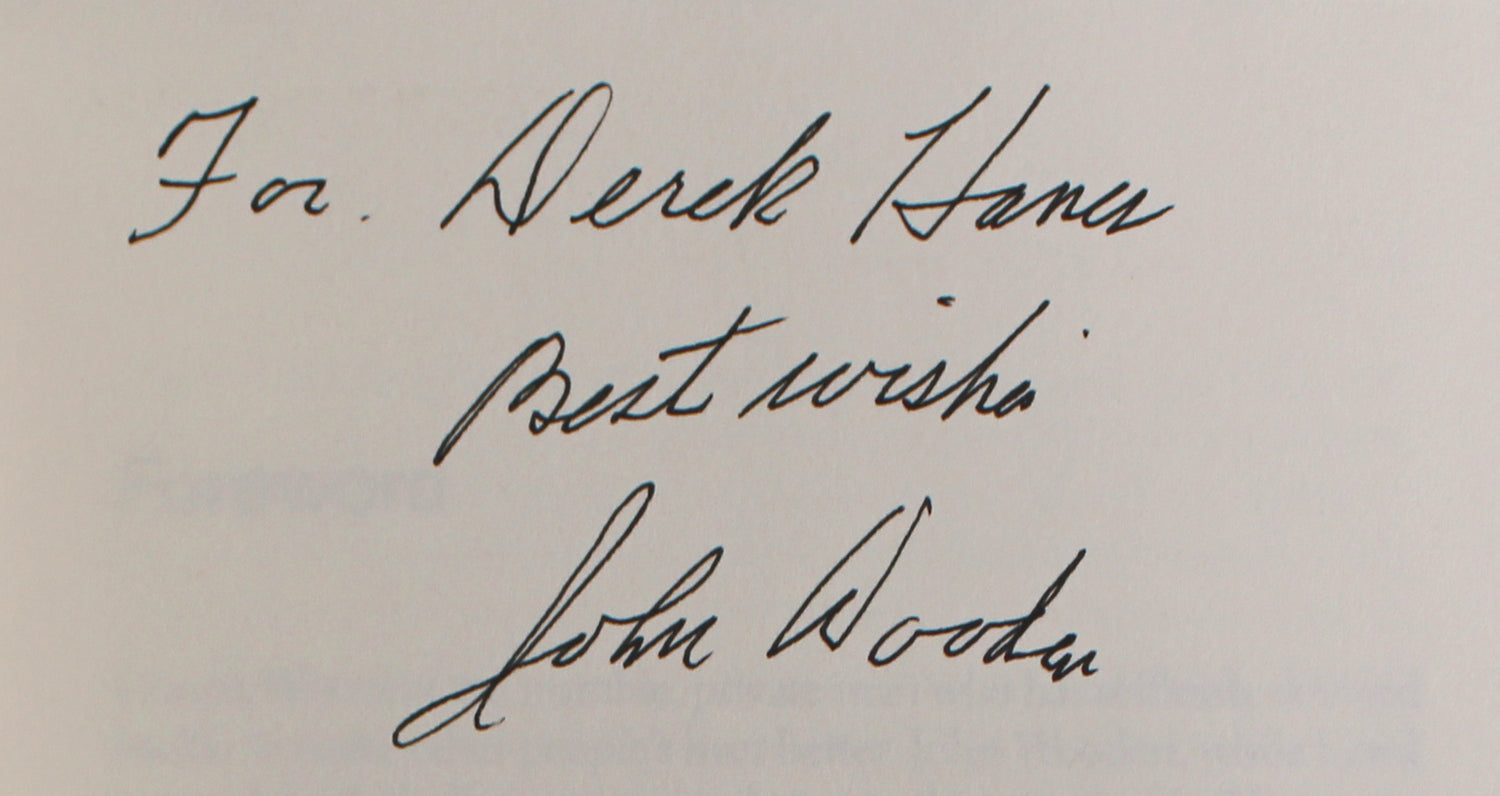 For. Derek Haner
Best wishes
John Wooden
Foreword